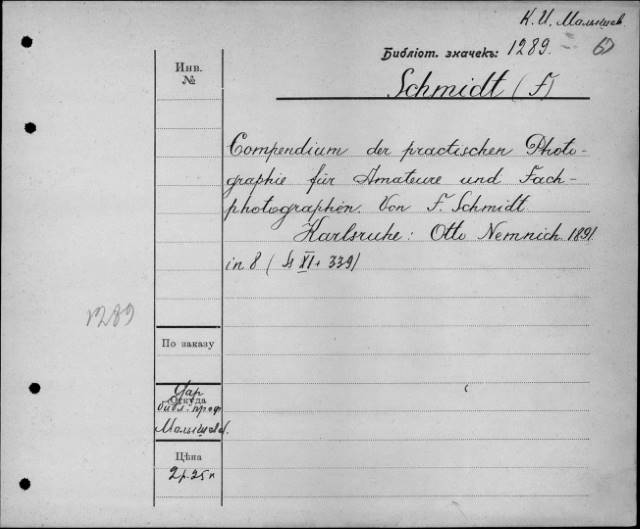 К. И. Малышев.
Библіот. значекъ: 1289.
Инв.
№
Schmidt (F)
Compendium der practischen Photo-
graphie für Amateure und Fach-
photographen. Von F. Schmidt
Karlsruhe: Otto Nemnich 1891
in 8 (Ss XI + 339)
1289
По заказу
Откуда
библ. проф
Малышева.
Цѣна
2р.25к